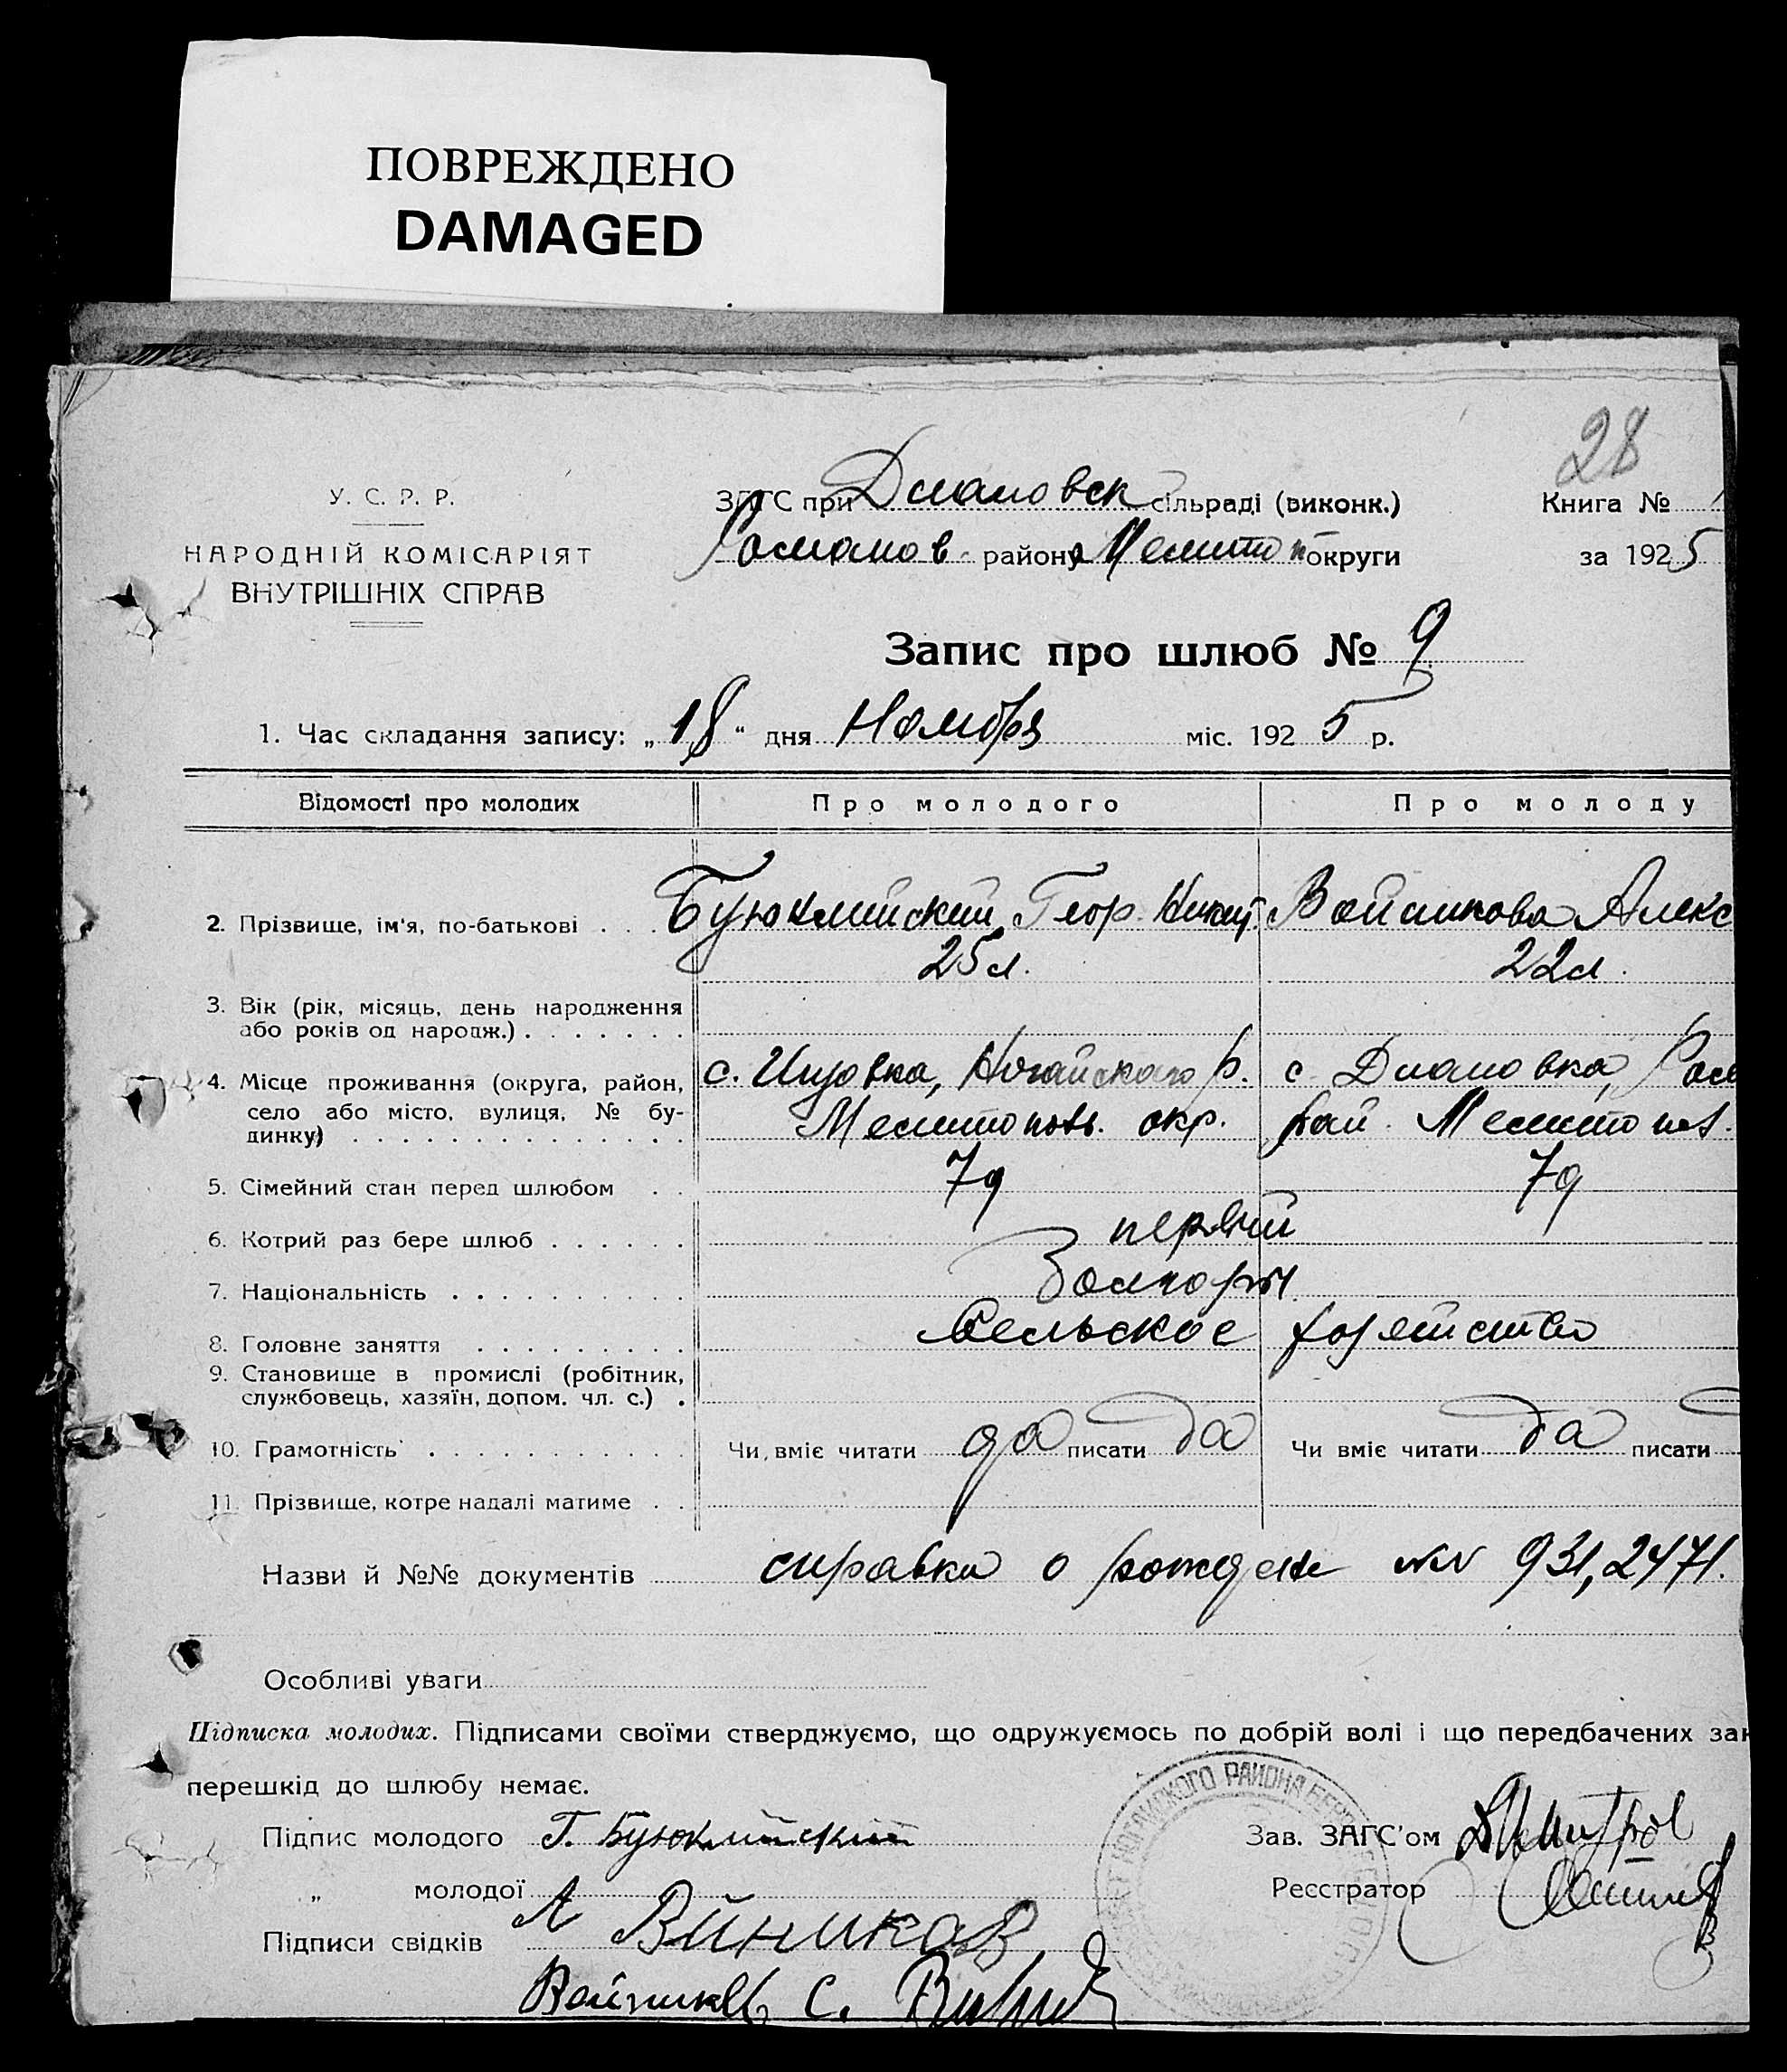 ПОВРЕЖДЕНО
DAMAGED
28
У. С. Р. Р.
НАРОДНІЙ КОМІСАРІЯТ
ВНУТРІШНІХ СПРАВ
ЗАГС при Диановск сільраді (виконк.)
району Мелитоп округи
Книга №
за 1925
Запис про шлюб № 9
1. Час складання запису: „18“ дня Ноября міс. 1925 р.
Відомості про молодих Про молодого Про молоду
2. Прізвище, ім'я, по-батькові . . . Буюклийский Геор. Никит. Войникова Алекс
25 л. 22 л.
3. Вік (рік, місяць, день народження
або років од народж.) . . . . . . .
4. Місце проживання (округа, район, с. Инзовка, Ногайского р. с. Диановка,
село або місто, вулиця, № бу-
динку) . . . . . . . . . . . . . . Мелитопов. окр. рай. Мелитопол.
5. Сімейний стан перед шлюбом . . 7д 7д
6. Котрий раз бере шлюб . . . . . . первый
7. Національність . . . . . . . . . . Болгоры
8. Головне заняття . . . . . . . . . Сельское хозяйство
9. Становище в промислі (робітник,
службовець, хазяїн, допом. чл. с.) .
10. Грамотність . . . . . . . . . . . Чи вміє читати да писати да Чи вміє читати да писати
11. Прізвище, котре надалі матиме . .
Назви й №№ документів справки о рожден №№ 931, 2471.
Особливі уваги
Підписка молодих. Підписами своїми стверджуємо, що одружуємось по добрій волі і що передбачених зак
перешкід до шлюбу немає.
Підпис молодого Г. Буюклийский
Зав. ЗАГС'ом
„ молодої
Реєстратор
А Вйникав
Підписи свідків
С.
РАЙОНА